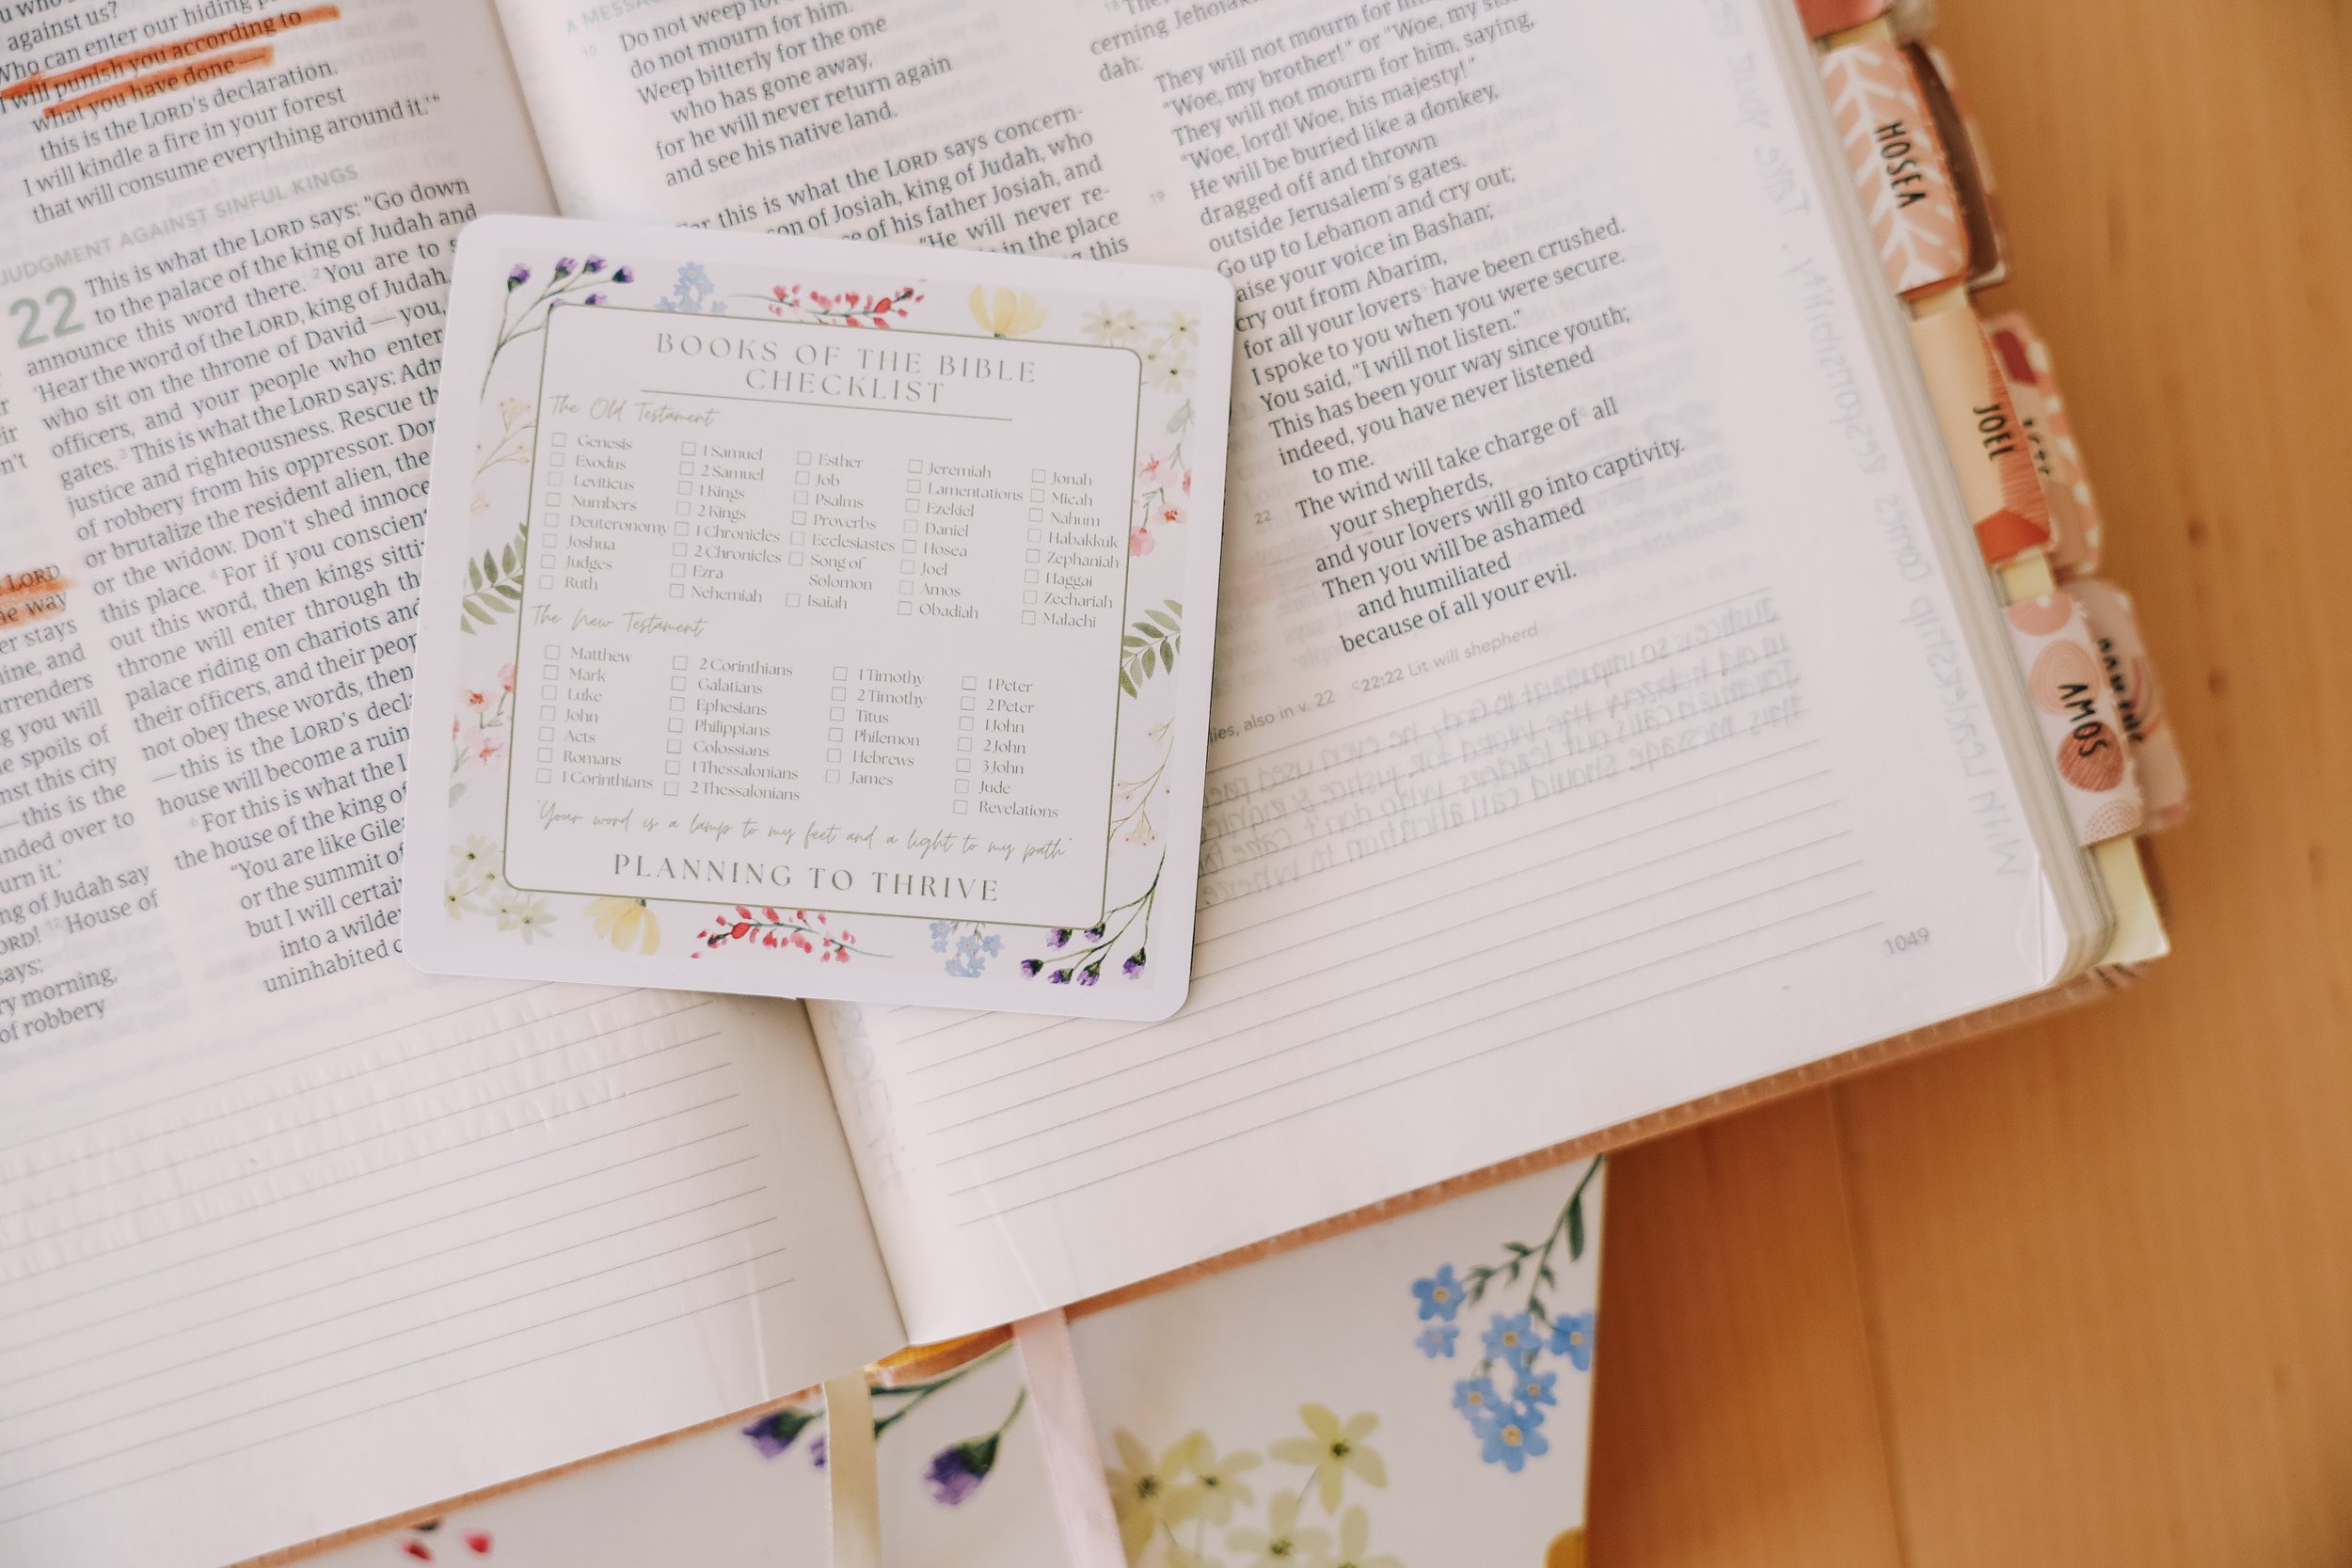 against us?
Who can enter our hiding
I will punish you according to
what you have done—
this is the LORD's declaration.
I will kindle a fire in your forest
that will consume everything around it.'"
JUDGMENT AGAINST SINFUL KINGS
22 This is what the LORD says: "Go down
to the palace of the king of Judah and
announce this word there. 2 You are to
'Hear the word of the LORD, king of Judah,
who sit on the throne of David—you,
officers, and your people who enter
gates. 3 This is what the LORD says: Adm
justice and righteousness. Rescue th
of robbery from his oppressor. Don
or brutalize the resident alien, the
or the widow. Don't shed innoce
this place. 4 For if you conscien
out this word, then kings sitti
throne will enter through th
palace riding on chariots and
their officers, and their peop
not obey these words, then
—this is the LORD's decl
house will become a ruin
6 For this is what the L
the house of the king of
"You are like Gile
or the summit of
but I will certai
into a wilde
uninhabited c
LORD
he way
er stays
ine, and
urrenders
g you will
e spoils of
nst this city
—this is the
nded over to
urn it.'
ng of Judah say
ORD! 12 House of
says:
ry morning,
of robbery
A MESSA
10 Do not weep for
do not mourn for him.
Weep bitterly for the one
who has gone away,
for he will never return again
and see his native land.
For this is what the LORD says concern-
son of Josiah, king of Judah, who
ce of his father Josiah, and
"He will never re-
in the place
this
cerning Jehoiak
dah:
They will not mourn for him
"Woe, my brother!" or "Woe, my sis
They will not mourn for him, saying,
"Woe, lord! Woe, his majesty!"
19 He will be buried like a donkey,
dragged off and thrown
outside Jerusalem's gates.
Go up to Lebanon and cry out;
raise your voice in Bashan;
cry out from Abarim,
for all your lovers have been crushed.
I spoke to you when you were secure.
You said, "I will not listen."
This has been your way since youth;
indeed, you have never listened
to me.
22 The wind will take charge of all
your shepherds,
and your lovers will go into captivity.
Then you will be ashamed
and humiliated
because of all your evil.
lies, also in v. 22 c 22:22 Lit will shepherd
1049
BOOKS OF THE BIBLE
CHECKLIST
The Old Testament
Genesis
Exodus
Leviticus
Numbers
Deuteronomy
Joshua
Judges
Ruth
1 Samuel
2 Samuel
1 Kings
2 Kings
1 Chronicles
2 Chronicles
Ezra
Nehemiah
Esther
Job
Psalms
Proverbs
Ecclesiastes
Song of
Solomon
Isaiah
Jeremiah
Lamentations
Ezekiel
Daniel
Hosea
Joel
Amos
Obadiah
Jonah
Micah
Nahum
Habakkuk
Zephaniah
Haggai
Zechariah
Malachi
The New Testament
Matthew
Mark
Luke
John
Acts
Romans
1 Corinthians
2 Corinthians
Galatians
Ephesians
Philippians
Colossians
1 Thessalonians
2 Thessalonians
1 Timothy
2 Timothy
Titus
Philemon
Hebrews
James
1 Peter
2 Peter
1 John
2 John
3 John
Jude
Revelations
"Your word is a lamp to my feet and a light to my path"
PLANNING TO THRIVE
HOSEA
JOEL
AMOS